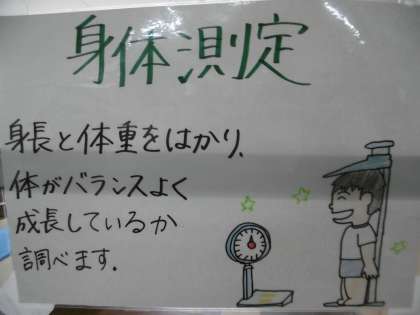 身体測定
身長と体重をはかり、
体がバランスよく
成長しているか
調べます.